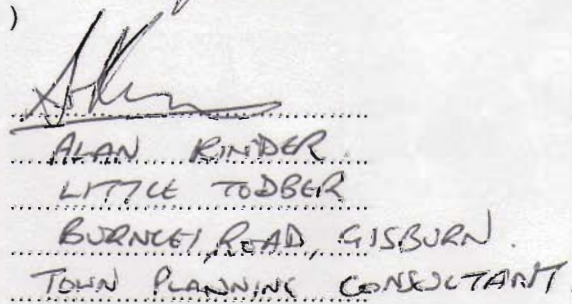 )
ALAN KINDER
LITTLE TODBER
BURNLEY ROAD, GISBURN.
TOWN PLANNING CONSULTANT.